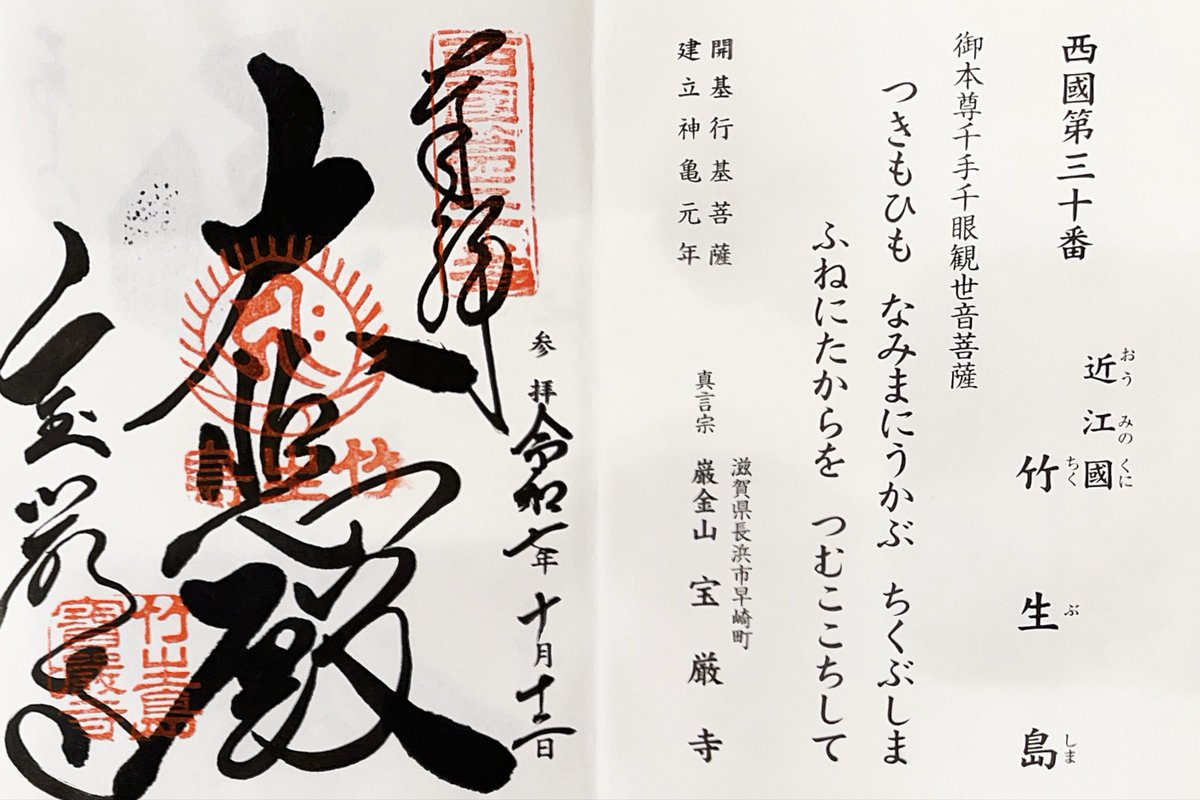 西國第三十番
近江國
おうみのくに
竹生島
ちくぶしま
御本尊千手千眼観世音菩薩
つきもひも なみまにうかぶ ちくぶしま
ふねにたからを つむここちして
開基行基菩薩
建立神亀元年
滋賀県長浜市早崎町
真言宗 巌金山 宝厳寺
参拝 令和七年十月十二日
奉拝
大悲殿
竹生島
竹生島
寶嚴寺
宝厳寺